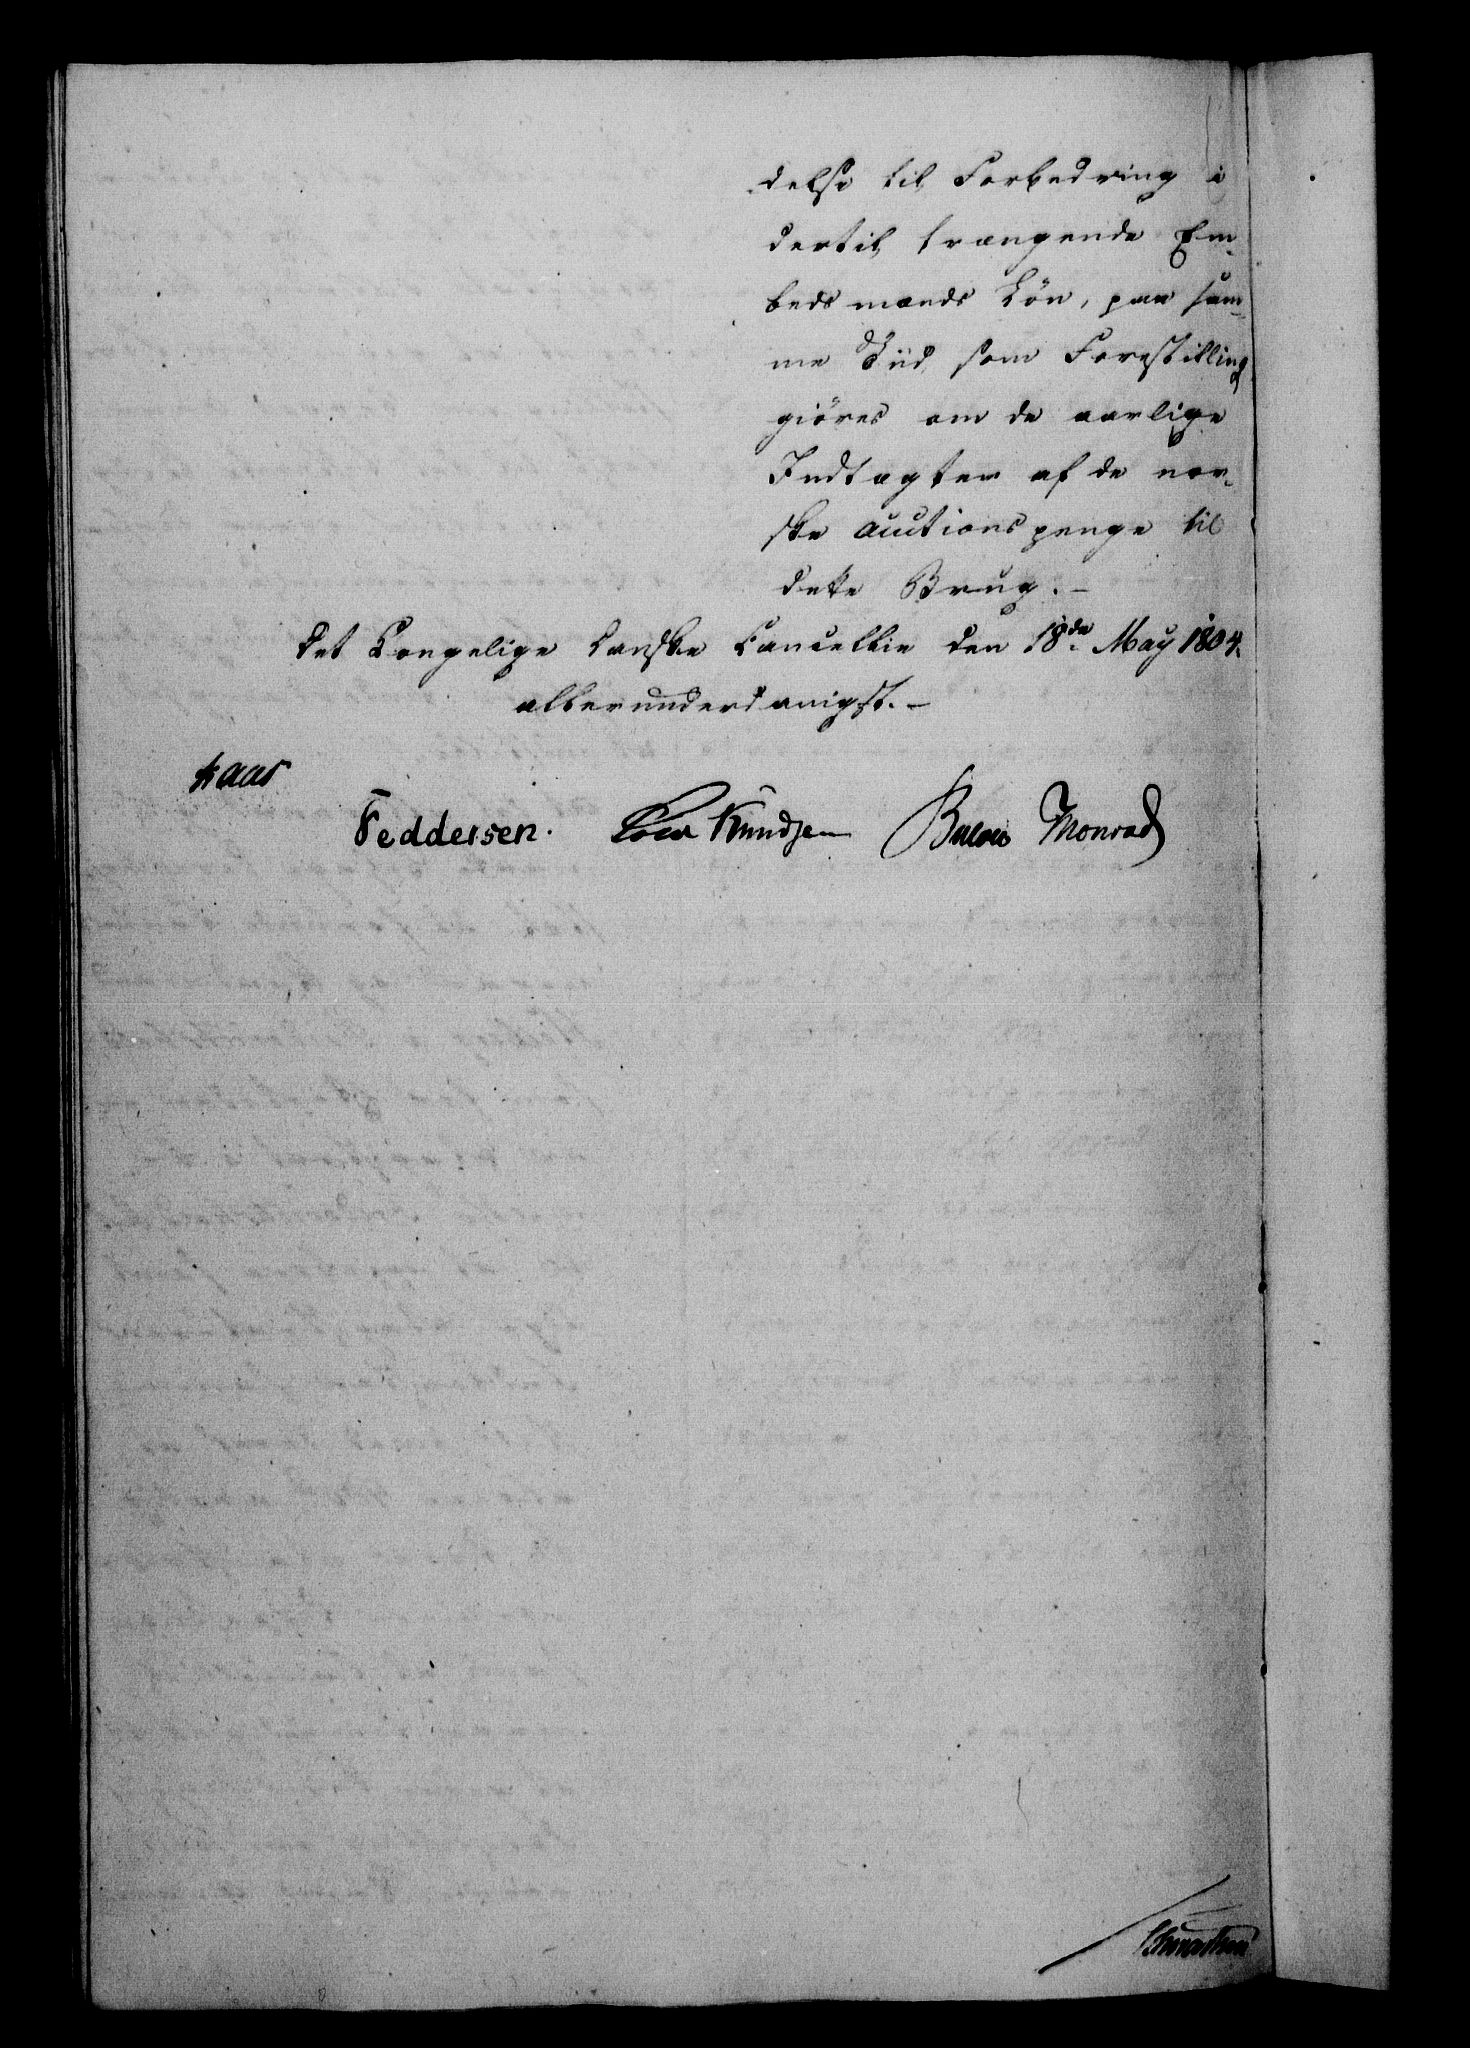 delse til Forbedring i
dertil trængende Em-
bedsmænds Løn, paa sam-
me Tiid som Forestilling
giöres om de aarlige
Indtægter af de nor-
ske Auctionspenge til
dette Brug. -
Det Kongelige Danske Cancellie den 18de May 1804.
allerunderdanigst. -
Kaas
Feddersen. Knudsen Bülow Monrad